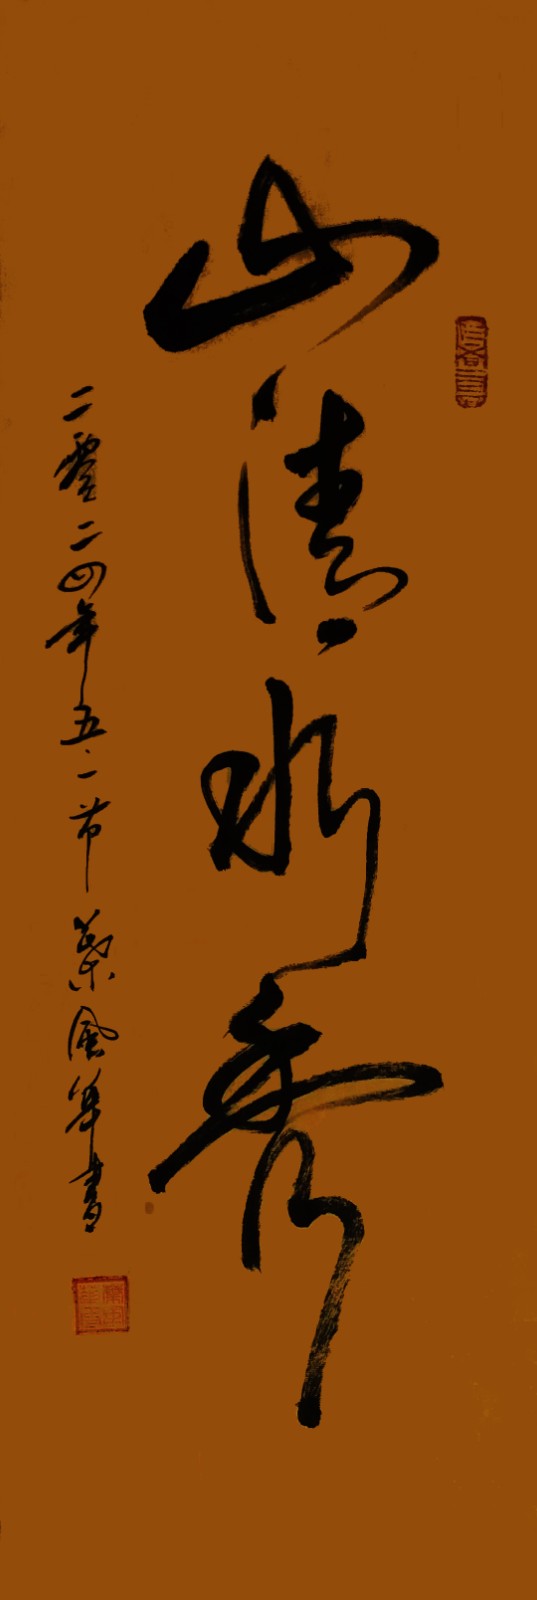 山清水秀
二零二四年五·一节 叶风华书